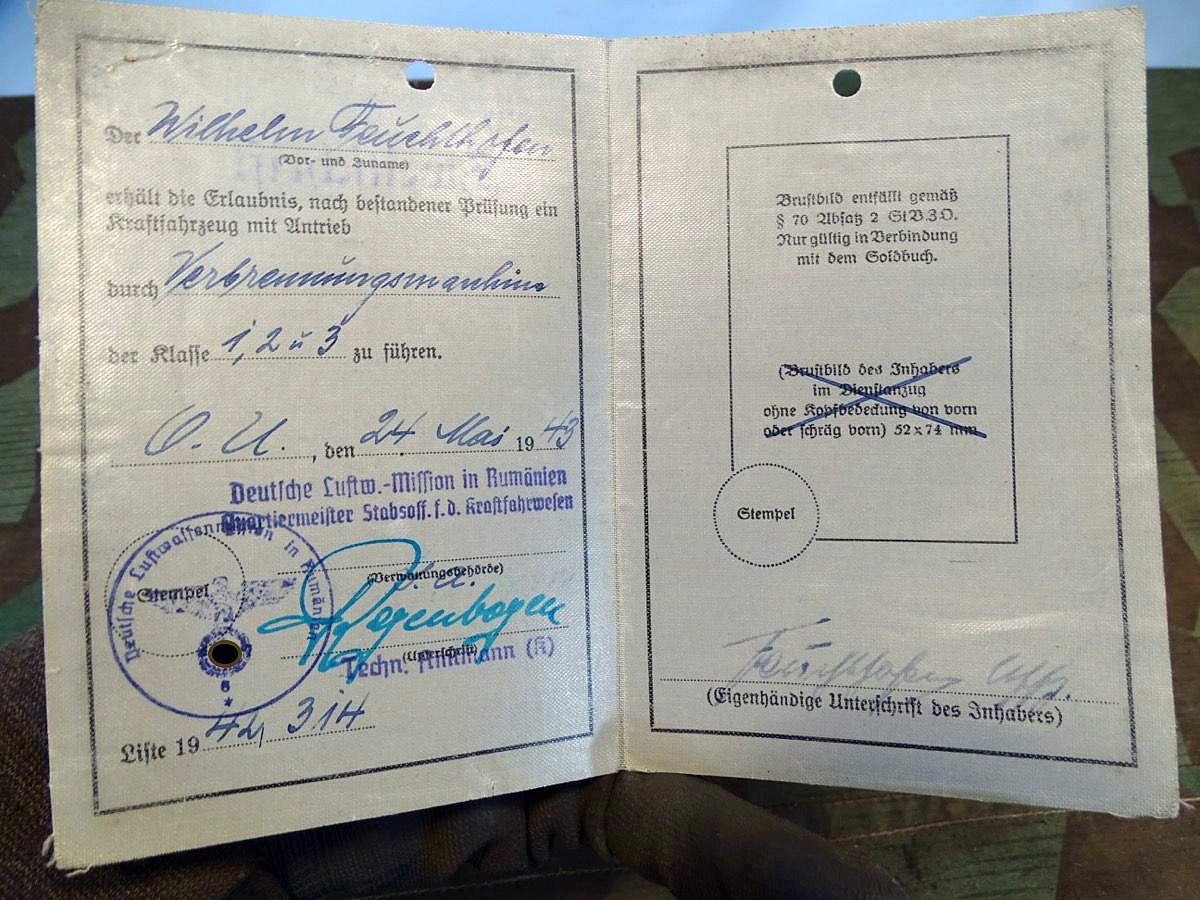 Der Wilhelm Feuchthofen
(Vor- und Zuname)
erhält die Erlaubnis, nach bestandener Prüfung ein
Kraftfahrzeug mit Antrieb
durch Verbrennungsmaschine
der Klasse 1, 2 u 3 zu führen.
O. U. , den 24. Mai 1943
Deutsche Luftw.-Mission in Rumänien
Quartiermeister Stabsoff. f. d. Kraftfahrwesen
Deutsche Luftwaffenmission in Rumänien
6
Stempel
(Verwaltungsbehörde)
Regenbogen
(Unterschrift)
Techn. Amtmann (K)
Liste 19 42, 314
Brustbild entfällt gemäß
§ 70 Absatz 2 StVZO.
Nur gültig in Verbindung
mit dem Soldbuch.
(Brustbild des Inhabers
im Dienstanzug
ohne Kopfbedeckung von vorn
oder schräg vorn) 52 x 74 mm
Stempel
Feuchthofen
(Eigenhändige Unterschrift des Inhabers)